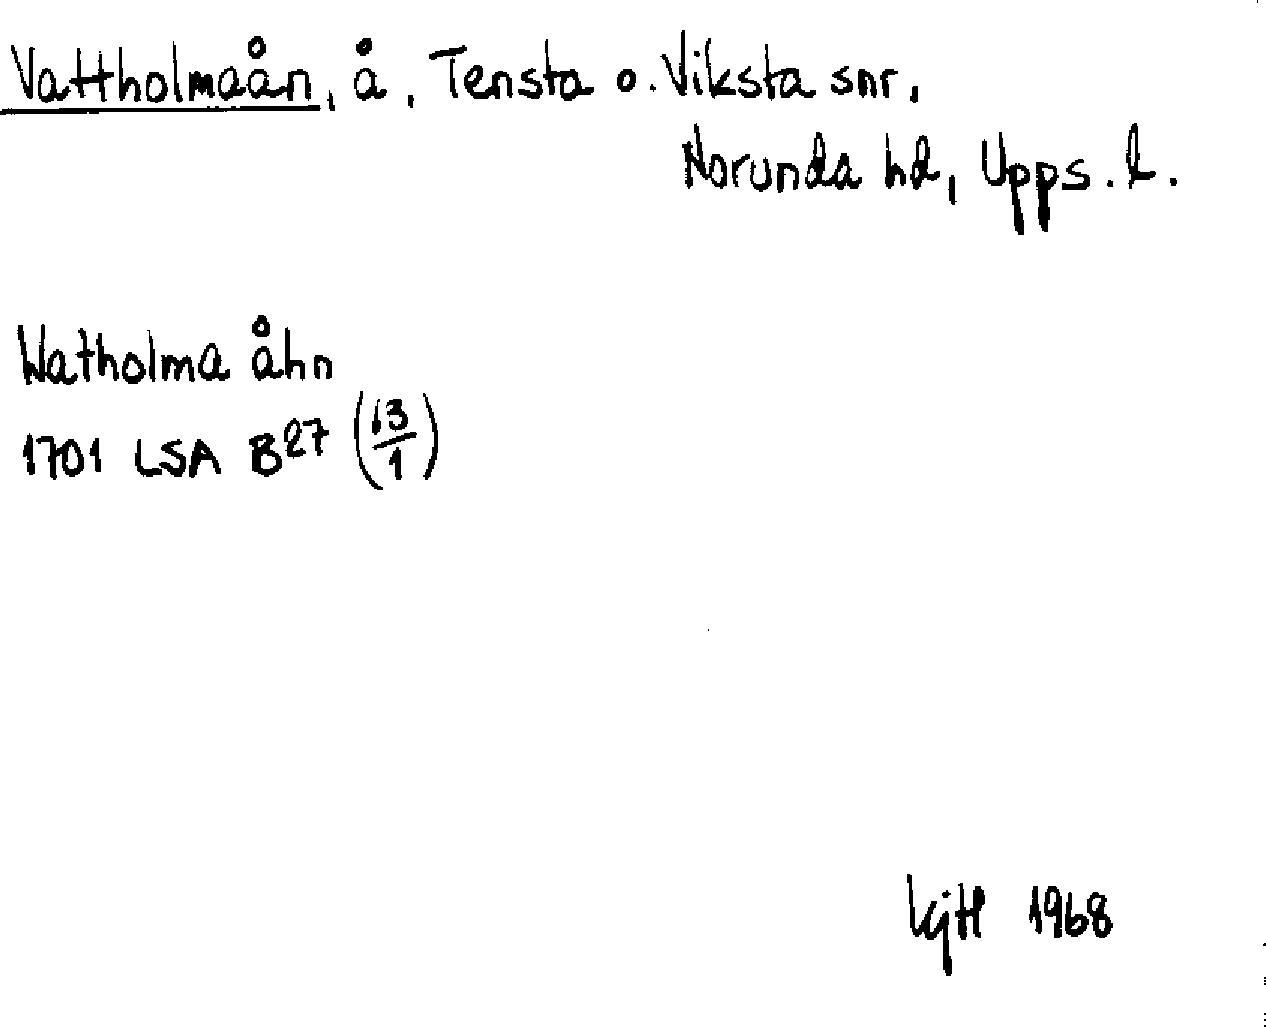 Vattholmaån, å, Tensta o. Viksta snr,
Norunda hd, Upps. l.
Watholma åhn
1701 LSA B27 (13/1)
KjH 1968